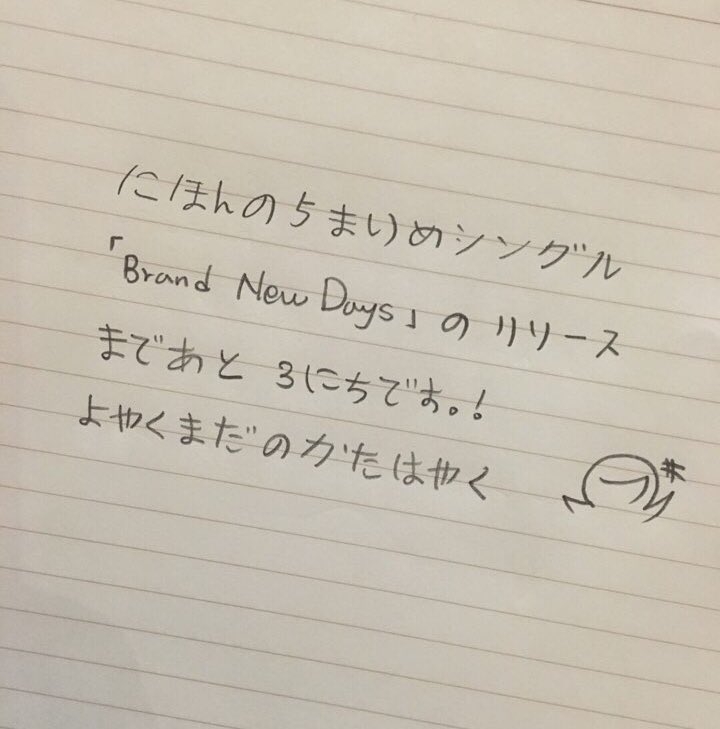 にほんの5まいめシングル
「Brand New Days」のリリース
まであと 3にちです。!
よやくまだのかたはやく